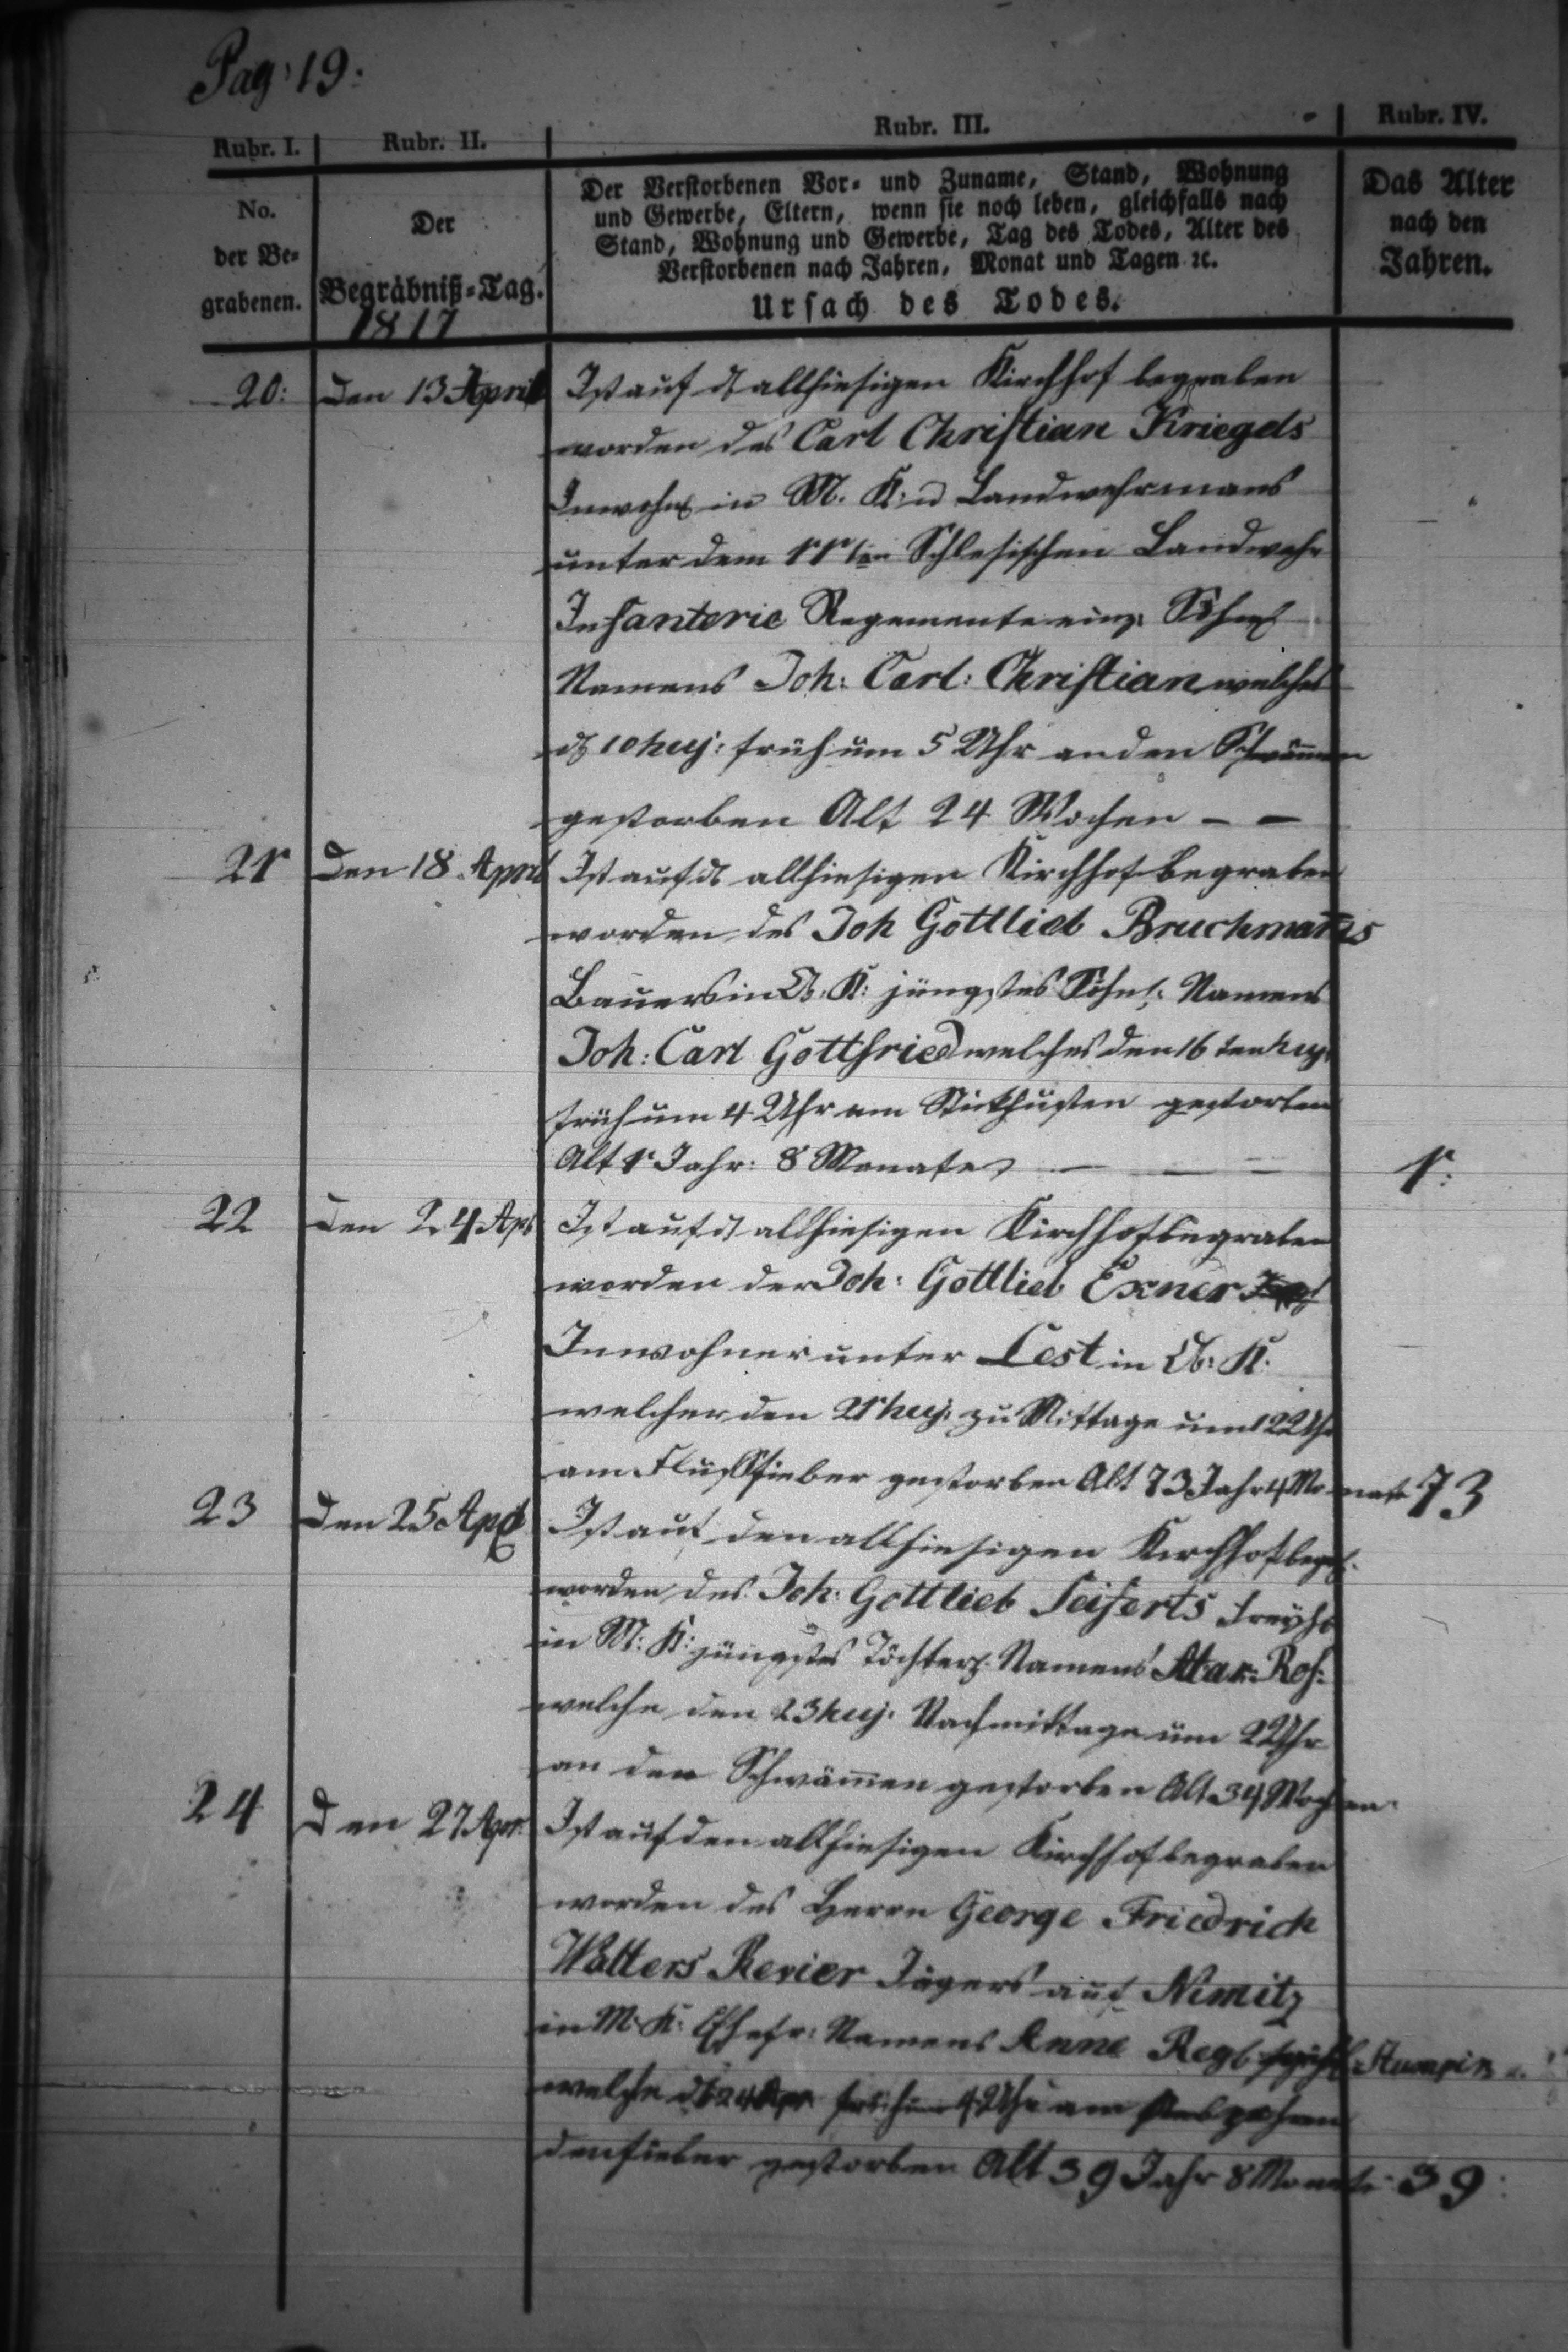 Pag: 19:
Rubr. I. Rubr. II. Rubr. III. Rubr. IV.
No.
der Be-
grabenen.
Der
Begräbniß-Tag.
1817
Der Verstorbenen Vor- und Zuname, Stand, Wohnung
und Gewerbe, Eltern, wenn sie noch leben, gleichfalls nach
Stand, Wohnung und Gewerbe, Tag des Todes, Alter des
Verstorbenen nach Jahren, Monat und Tagen ꝛc.
Ursach des Todes.
Das Alter
nach den
Jahren.
20: Den 13 April Ist auf d allhiesigen Kirchhof begraben
worden des Carl Christian Kriegels
Inwohn in M. K: u Landwehrmans
unter dem 11ten Schlesischen Landwehr
Infanterie Regemente einz. Söhnl
Namens Joh: Carl: Christian welches
d 10 huj: früh um 5 Uhr an den Schwämmen
gestorben Alt 24 Wochen – –
21 Den 18 April Ist auf d allhiesigen Kirchhof begraben
worden des Joh Gottlieb Bruchmans
Bauers in Ob: K: jüngstes Söhnl: Namens
Joh: Carl Gottfried welches den 16 ten huj.
früh um 4 Uhr am Stickhusten gestorben
Alt 1 Jahr: 8 Monate – – – 1:
22 Den 24 Apr Ist auf d allhiesigen Kirchhof begraben
worden der Joh: Gottlieb Exner
Inwohner unter Lest in Ob: K:
welcher den 21 huj: zu Mittage um 12 Uhr
am Flußfieber gestorben Alt 73 Jahr 4 Monate 73
23 Den 25 Apr Ist auf den allhiesigen Kirchhof begr.
worden des Joh: Gottlieb Seiferts Freyh
in M: K: jüngstes Töchterl. Namens Mar: Ros:
welche den 23 huj: Nachmittage um 2 Uhr
an den Schwämen gestorben Alt 34 Wochen.
24 Den 27 Apr. Ist auf den allhiesigen Kirchhof begraben
worden des Herrn George Friedrich
Walters Revier Jägers auf Nimitz
in M: K: Ehefr: Namens Anne Regl Stumpin
welche d 24 Apr früh um 4 Uhr am
denfieber gestorben Alt 39 Jahr 8 Monate 39: